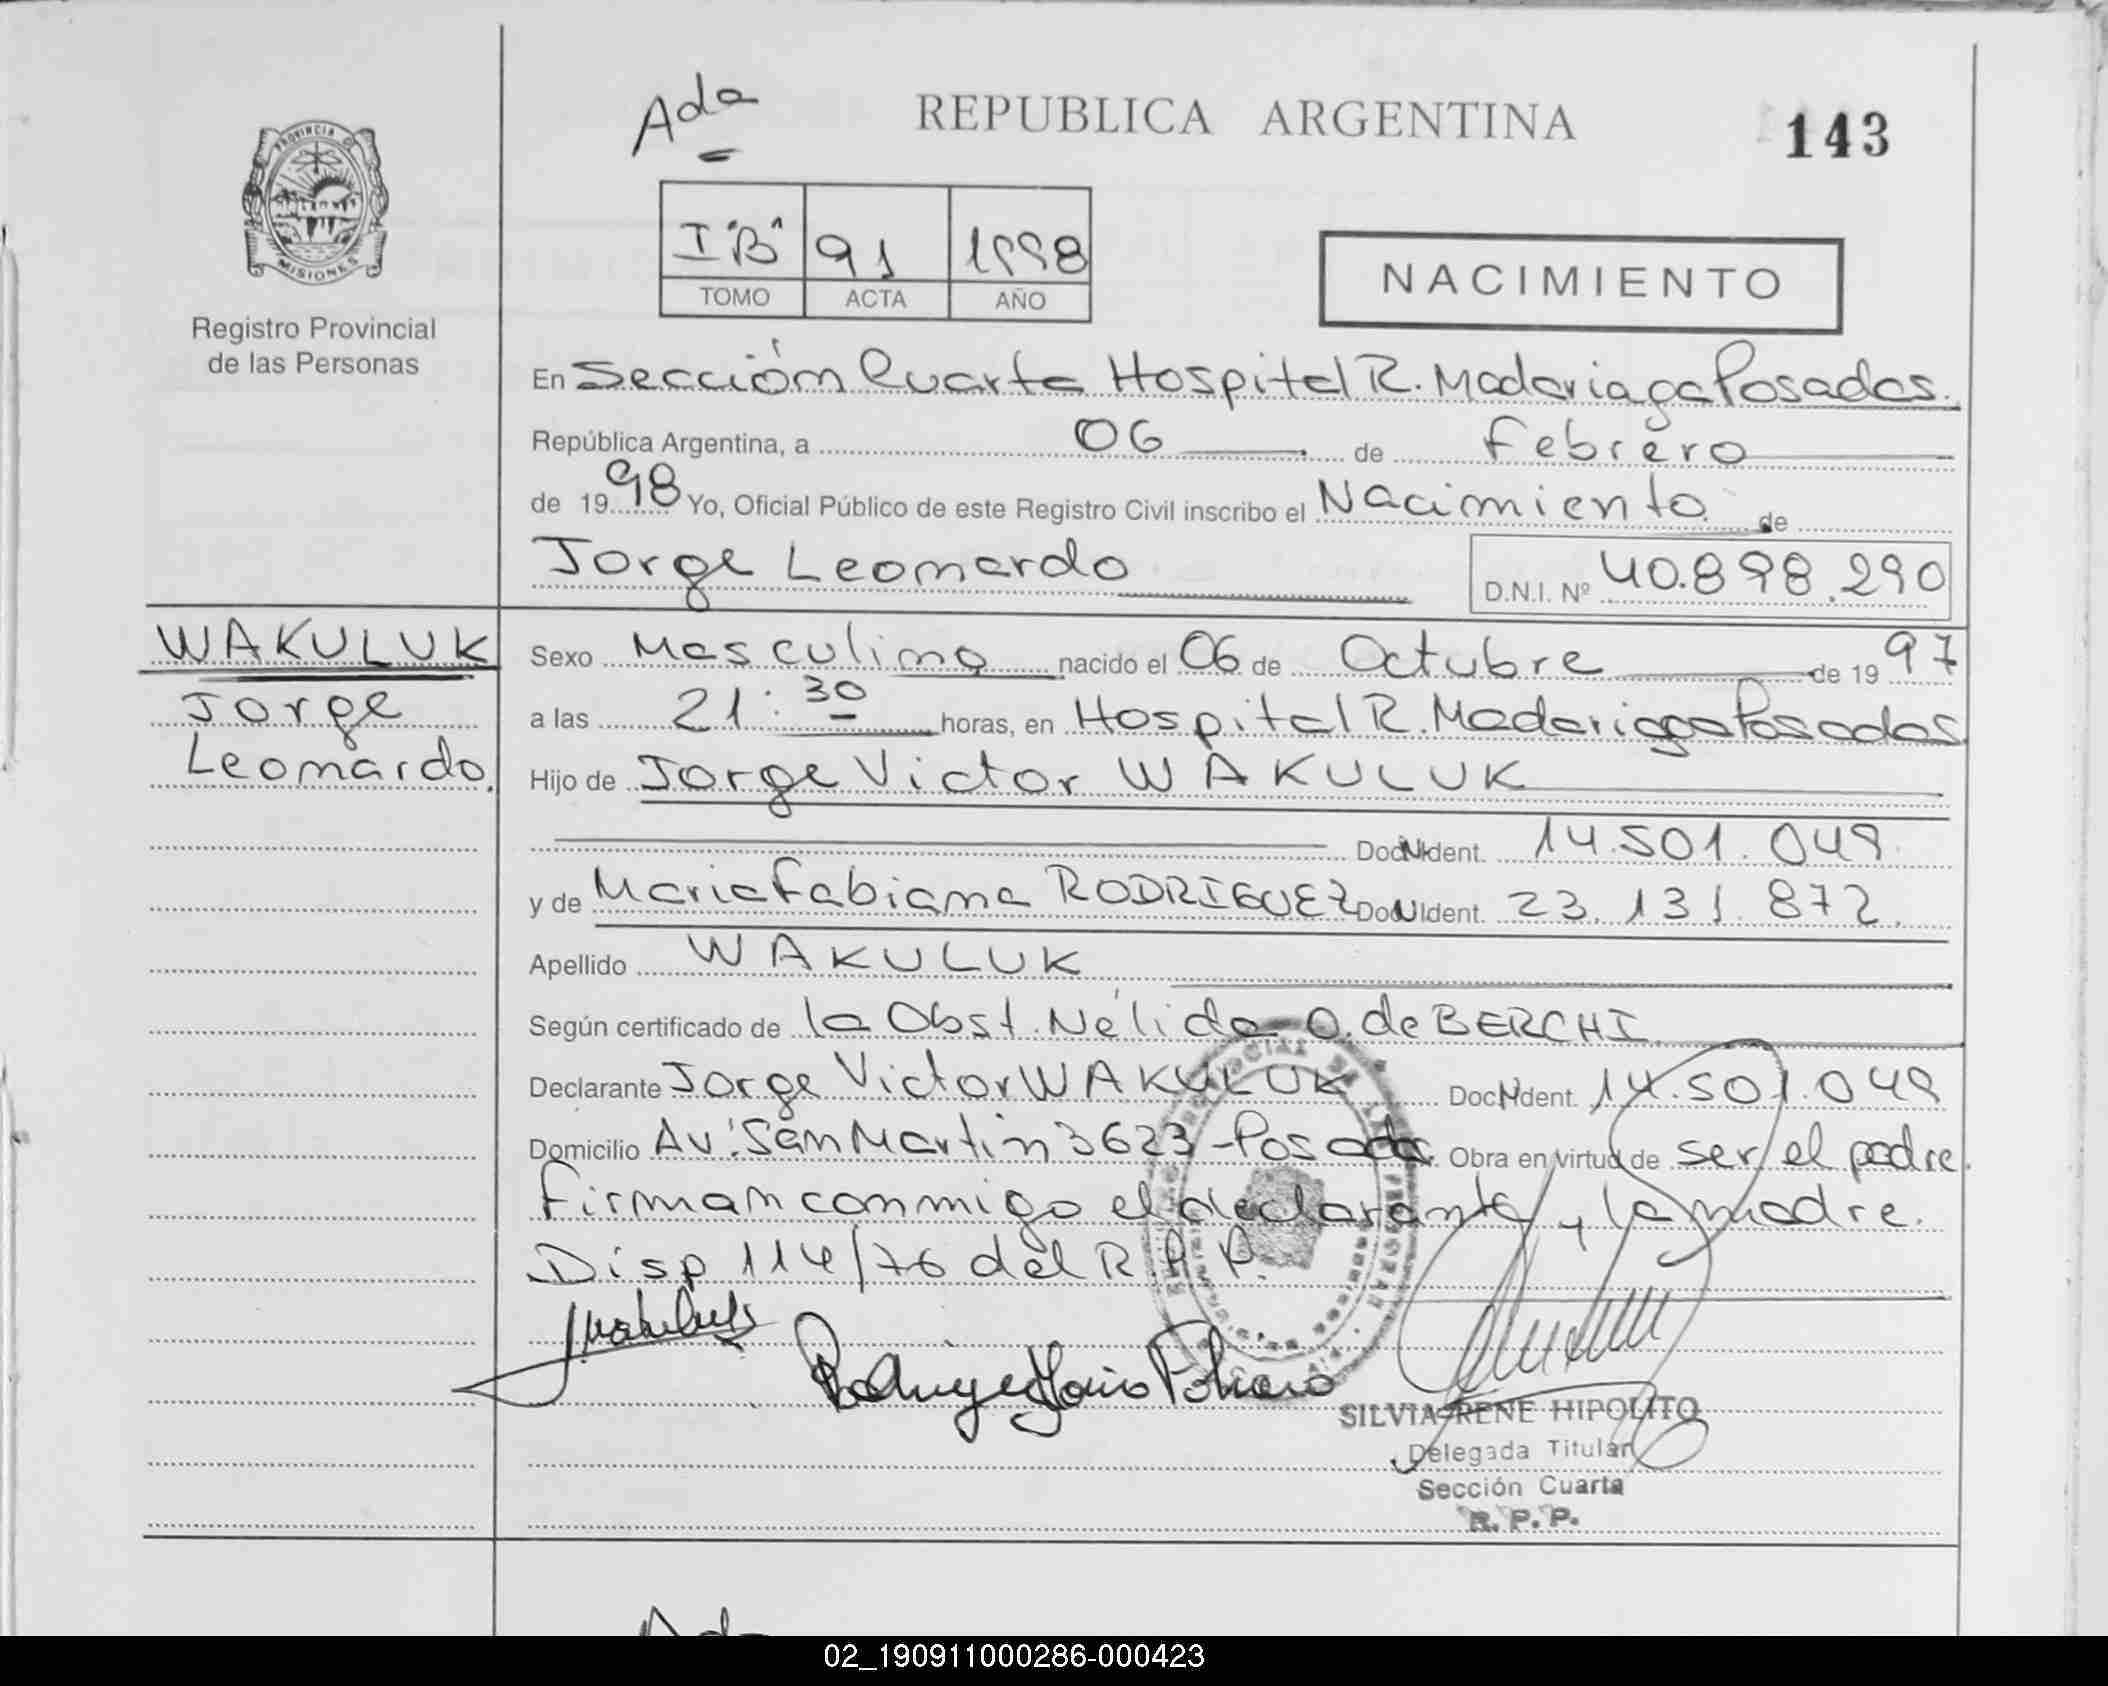 Ada
REPUBLICA ARGENTINA
143
PROVINCIA DE
MISIONES
Registro Provincial
de las Personas
I "B" 91 1998
TOMO ACTA AÑO
NACIMIENTO
En Sección Cuarta Hospital R. Madariaga Posadas.
República Argentina, a 06 de Febrero
de 1998 Yo, Oficial Público de este Registro Civil inscribo el Nacimiento de
Jorge Leonardo D.N.I. Nº 40.898.290
WAKULUK
Jorge
Leonardo.
Sexo Masculino nacido el 06 de Octubre de 1997
a las 21:30 horas, en Hospital R. Madariaga Posadas
Hijo de Jorge Victor WAKULUK
Doc. Ident. 14.501.049
y de Maria Fabiana RODRIGUEZ Doc. Ident. 23.131.872.
Apellido WAKULUK
Según certificado de la Obst. Nélida O. de BERCHI
Declarante Jorge Victor WAKULUK Doc. Ident. 14.501.049
Domicilio Av. San Martin 3623 - Posadas Obra en virtud de ser el padre.
Firman conmigo el declarante y la madre.
Disp 114/76 del R.P.P.
Rodriguez Maria Fabiana
SILVIA RENE HIPOLITO
Delegada Titular
Sección Cuarta
R.P.P.
02_190911000286-000423